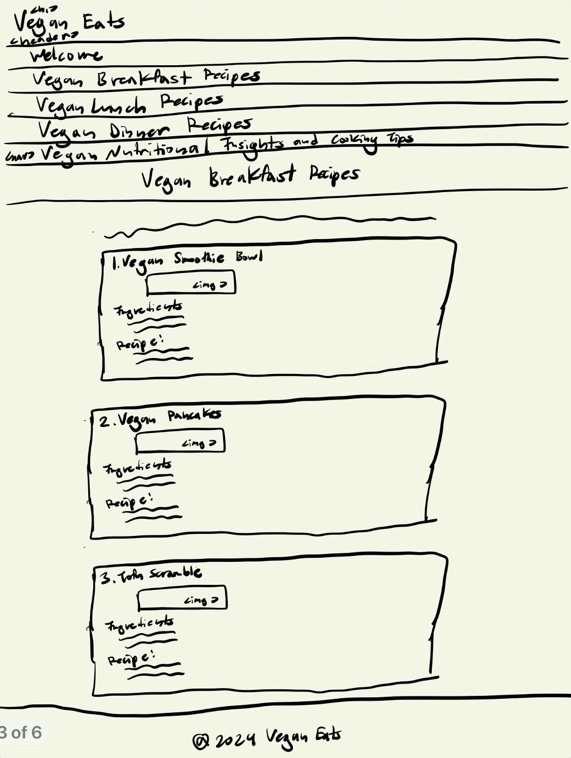 <h1>
Vegan Eats
<header>
Welcome
Vegan Breakfast Recipes
Vegan Lunch Recipes
Vegan Dinner Recipes
<nav> Vegan Nutritional Insights and Cooking Tips
Vegan Breakfast Recipes
1. Vegan Smoothie Bowl
<img>
Ingredients
Recipe:
2. Vegan Pancakes
<img>
Ingredients
Recipe:
3. Tofu Scramble
<img>
Ingredients
Recipe:
3 of 6
@ 2024 Vegan Eats